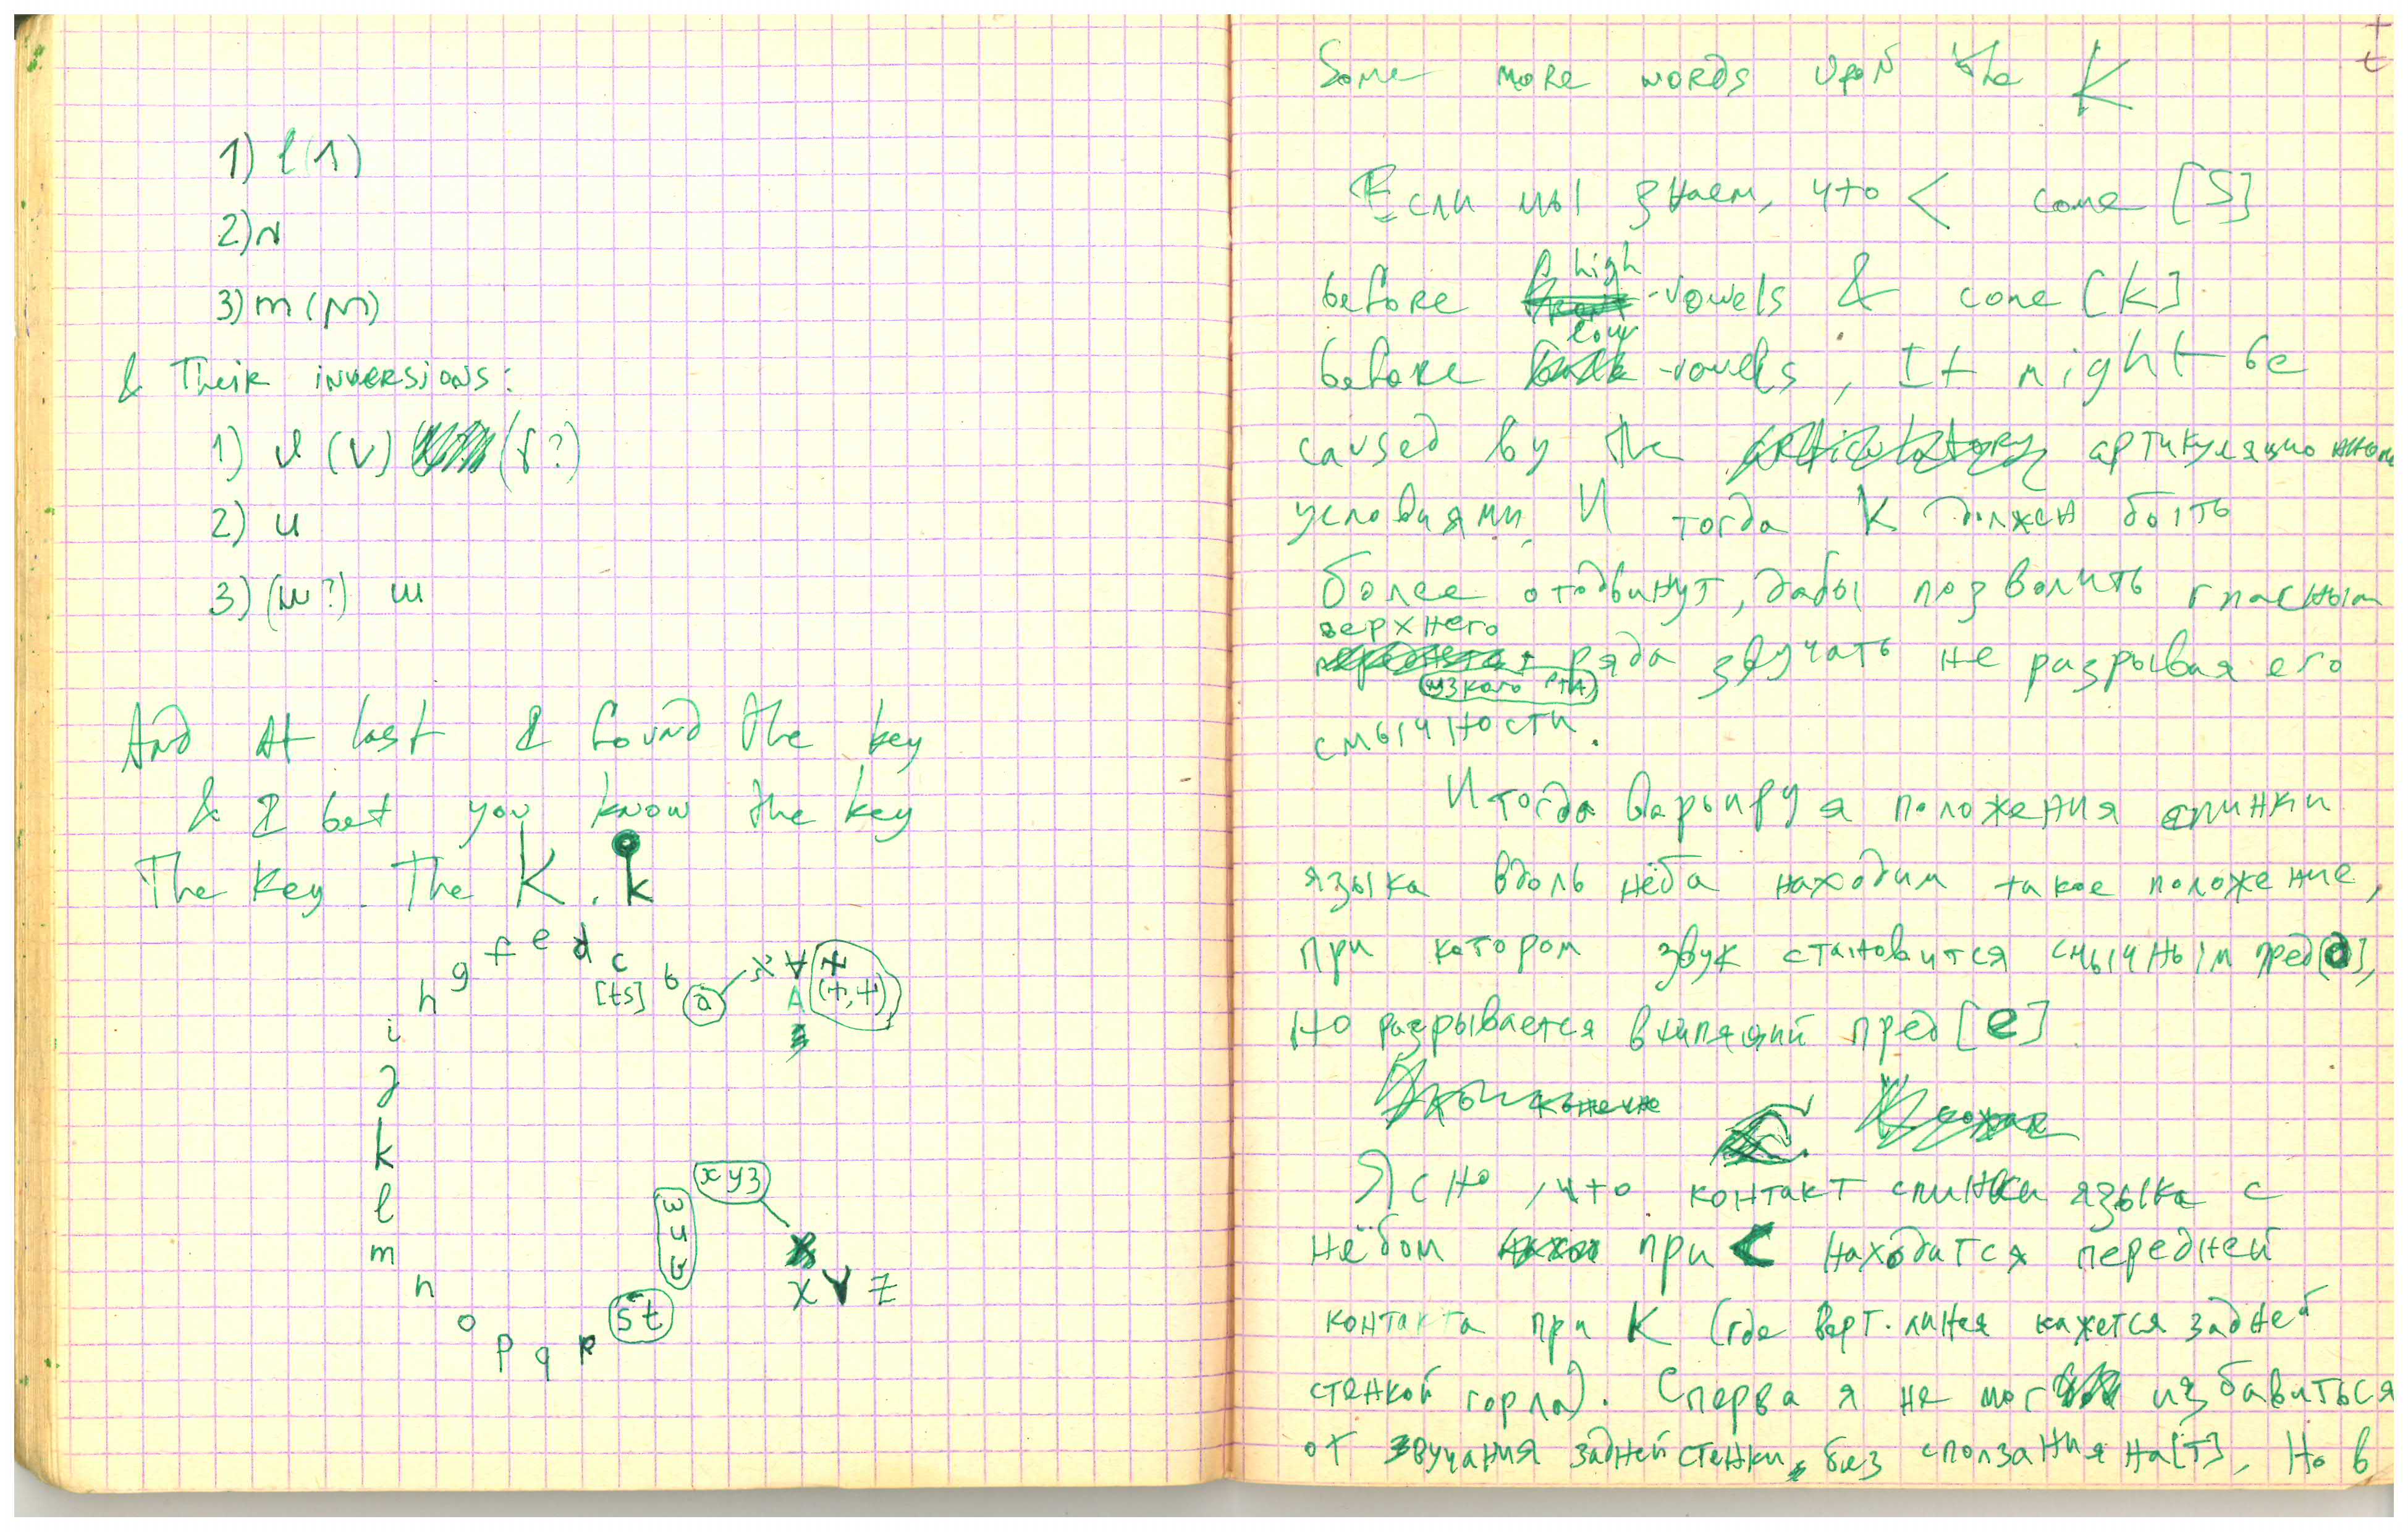 1) l (1)
2) N
3) m (M)
& Their inversions:
1) (V) (?)
2) u
3) (w?) ш
And At last I found the key
& I bet you know the key
The Key. The K. k
h g f e d c b a
[ts]
A
(+,+)
i
j
k
l
m
n
o
p q R
s t
x y z
X Y Z
Some more words upoN the K
t
Если мы знаем, что < come [S]
high
before -vowels & come [k]
low
before -vowels, It might be
caused by the артикуляционными
условиями. И тогда K должен быть
более отодвинут, дабы позволить гласным
верхнего
ряда звучать не разрывая его
(узкого рта)
смычности.
И тогда варьируя положения спинки
языка вдоль нёба находим такое положение,
при котором звук становится смычным пред [a],
но разрывается в шипящий пред [e].
конечно
Ясно, что контакт спинки языка с
нёбом при < находится передней
контакта при K (где верт. линия кажется задней
стенкой горла). Сперва я не мог избавиться
от звучания задней стенки, без сползания на [т], Но в